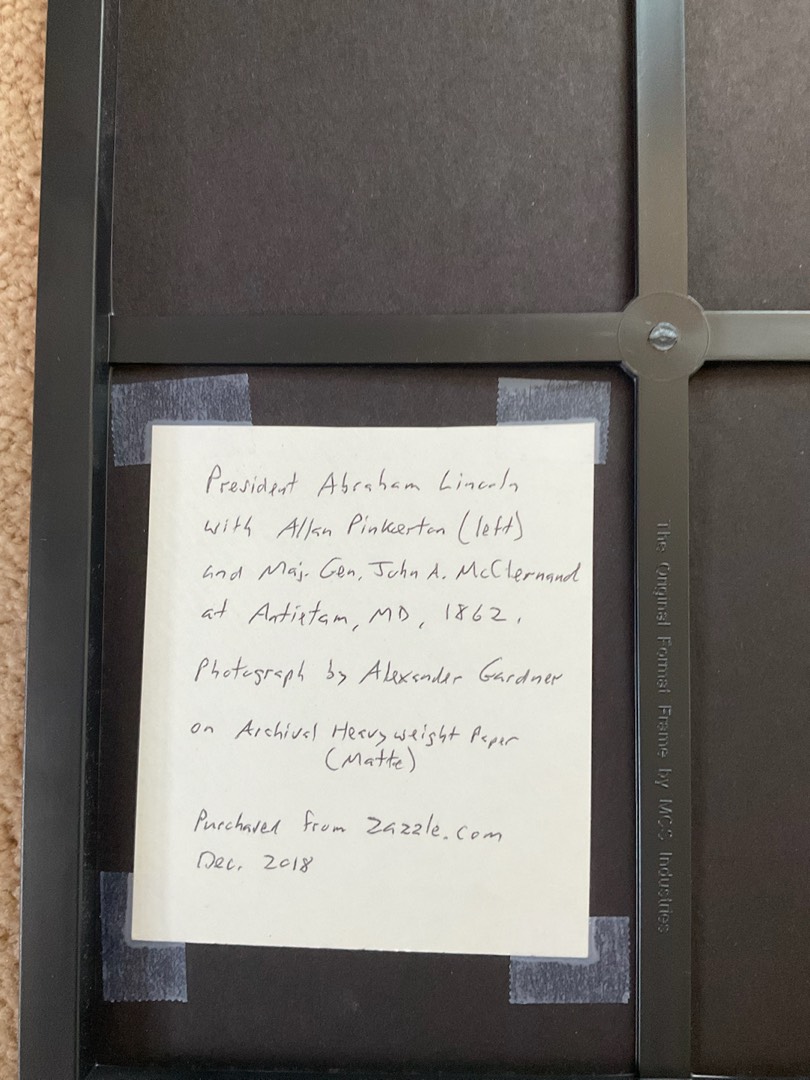 President Abraham Lincoln
with Allan Pinkerton (left)
and Maj. Gen. John A. McClernand
at Antietam, MD, 1862.
Photograph by Alexander Gardner
on Archival Heavyweight Paper
(Matte)
Purchased from Zazzle.com
Dec. 2018
The Original Format Frame by MCS Industries